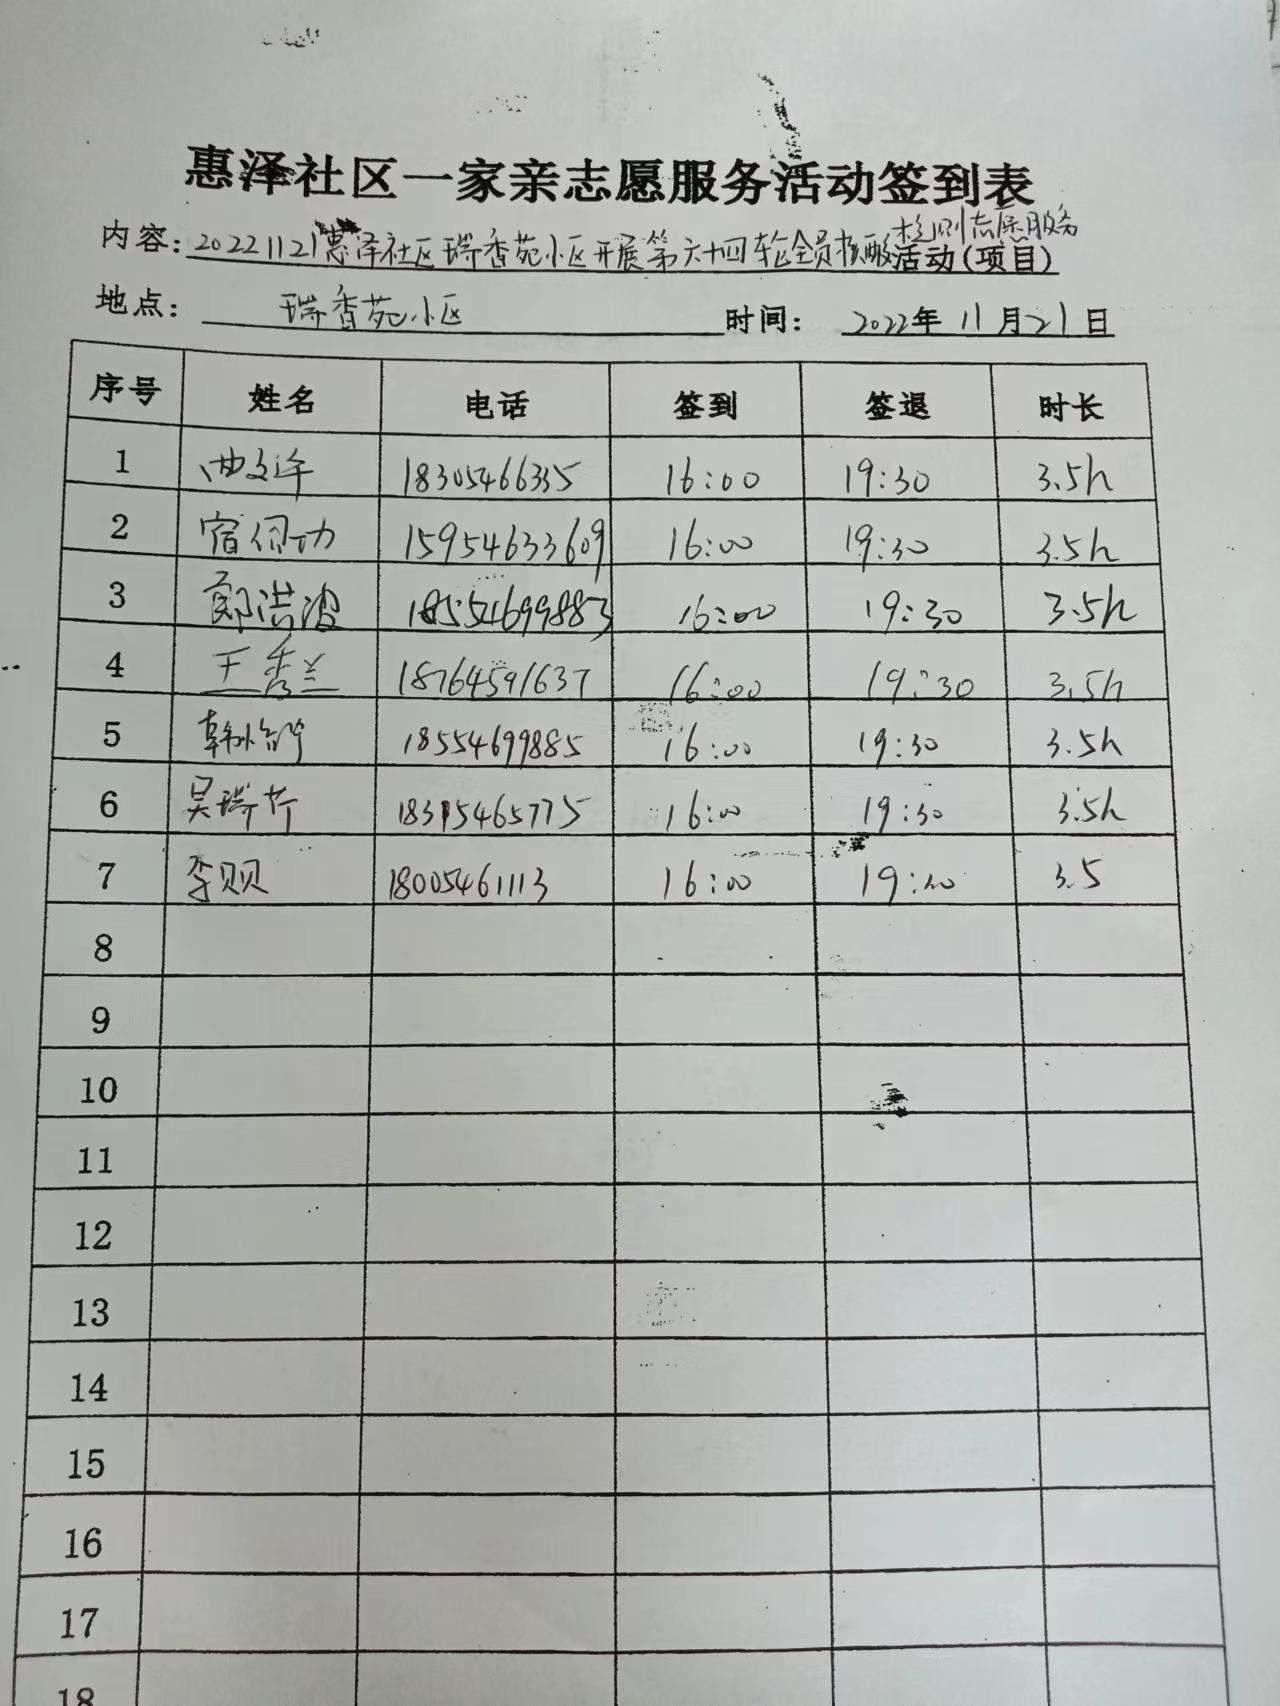 惠泽社区一家亲志愿服务活动签到表
内容：20221121惠泽社区瑞香苑小区开展第六十四轮全员核酸检测志愿服务活动（项目）
地点： 瑞香苑小区 时间： 2022年11月21日
序号 姓名 电话 签到 签退 时长
1 曲文 18305466335 16:00 19:30 3.5h
2 宿 功 15954633609 16:00 19:30 3.5h
3 郭洪波 18554699883 16:00 19:30 3.5h
4 王秀兰 18764591637 16:00 19:30 3.5h
5 韩 18554699885 16:00 19:30 3.5h
6 吴瑞芹 18315465775 16:00 19:30 3.5h
7 李贝贝 18005461113 16:00 19:30 3.5
8
9
10
11
12
13
14
15
16
17
18